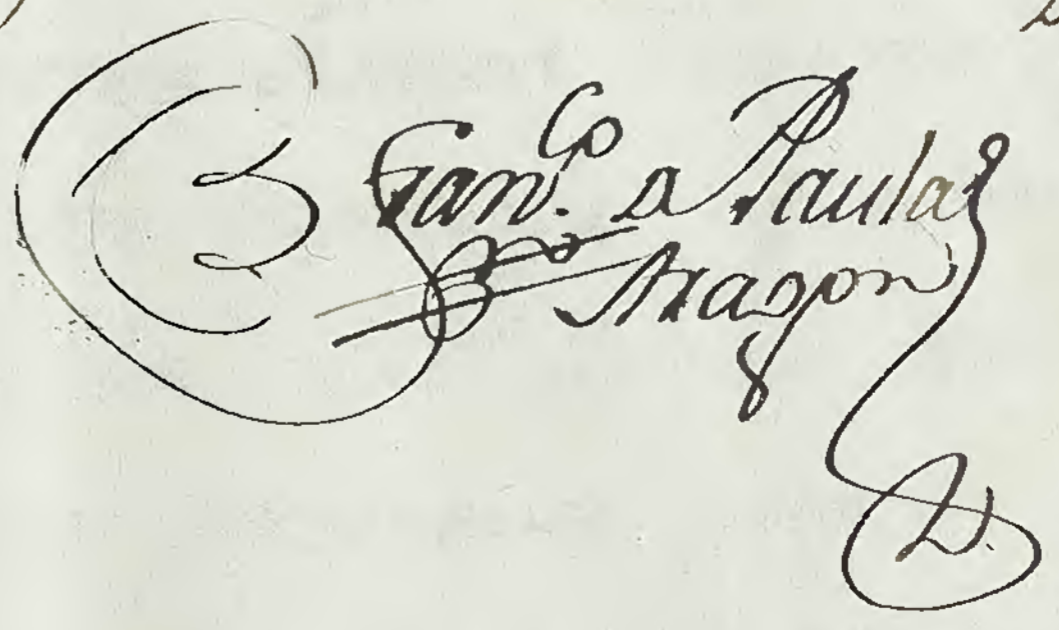 Fran.co de Paula
Aragon